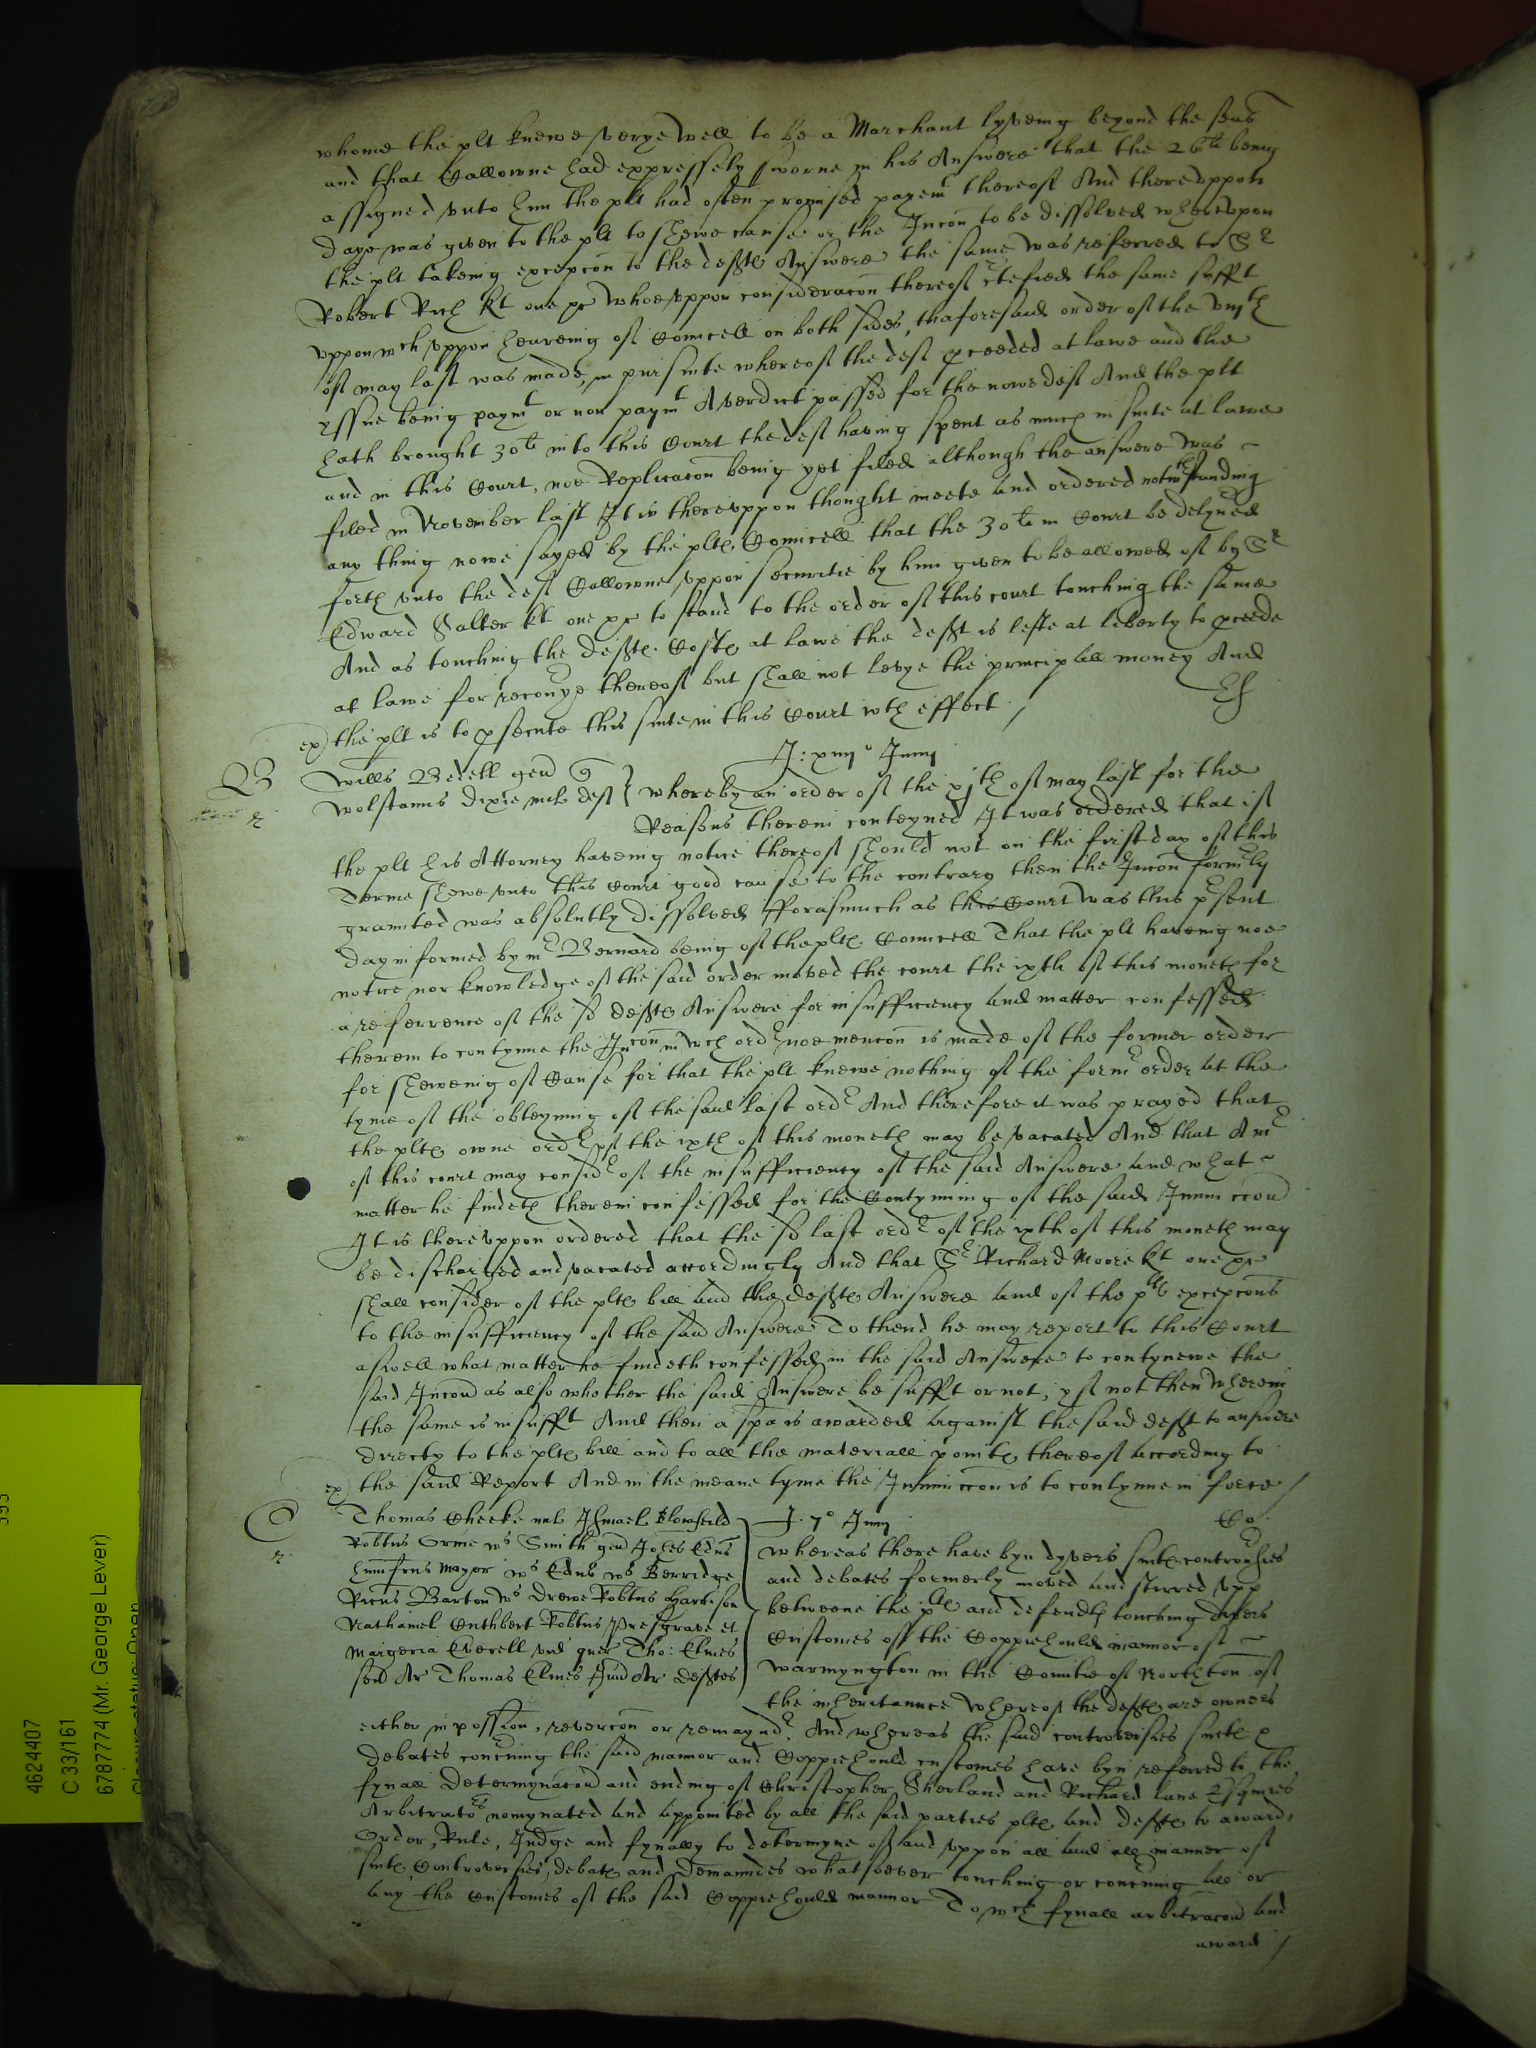 whome the plt knewe verye well to be a Marchant lyveing beyond the seas
and that Gallowne had expressely sworne in his Answere that the 26li being
assigned unto him the plt had often promised payemt thereof And thereuppon
daye was given to the plt to shewe cause or the Incon to be dissolved whereupon
the plt takeing excepcon to the defts Answere the same was referred to Sr
Robert Rich kt one &c Whoe uppon consideracon thereof certefied the same sufft
uppon wch uppon heareing of Councell on both sides, thaforesaid order of the viijth
of may last was made, in pursuite whereof the deft pceeded at lawe and the
yssue being paymt or non paymt A verdict passed for the nowe deft And the plt
hath brought 30li into this Court the deft having spent as much in suite at lawe
and in this Court, noe Replicacon being yet filed although the answere was
filed in November last It is thereuppon thought meete and ordered notwthstanding
any thing nowe sayed by the plts Councell that the 30li in Court be delyved
forth unto the deft Gallowne uppon securitie by him given to be allowed of by Sr
Edward Salter kt one &c to stand to the order of this court touching the same
And as touching the defts Costs at lawe the deft is lefte at liberty to pceede
at lawe for recovye thereof but shall not levye the principall money And
the plt is to psecute this suite in this Court wth effect /
ex)
B
J: xiiijo Junij
Willus Bedell gen q
Wolstanus Dixie mil deft
whereby an order of the xjth of may last for the
Reasons therein conteyned It was ordered that if
the plt his Attorney haveing notice thereof should not on the first day of this
Terme shewe unto this Court good cause to the contrary then the Incon formly
graunted was absolutly dissolved fforasmuch as this Court was this psent
day informed by mr Bernard being of the plts Councell That the plt haveing noe
notice nor knowledge of the said order moved the court the ixth of this moneth for
a referrence of the sd defts Answere for insufficiency and matter confessed
therein to contynue the Incon in wch ordr noe mencon is made of the former order
for sheweing of Cause for that the plt knewe nothing of the formr order at the
tyme of the obteyning of the said last ordr And therefore it was prayed that
the plts owne ordr of the ixth of this moneth may be vacated And that A mr
of this court may considr of the insufficiency of the said Answere and what
matter he findeth therein confessed for the Contynuing of the said Iniunccon
It is thereuppon ordered that the sd last ordr of the ixth of this moneth may
be discharged and vacated accordingly And that Sr Richard Moore kt one &c
shall consider of the plts bill and the defts Answere and of the plts excepcons
to the insufficiency of the said Answere To thend he may report to this Court
aswell what matter he findeth confessed in the said Answere to contynewe the
said Incon as also whether the said Answere be sufft or not, yf not then wherein
the same is insufft And then a spa is awarded against the said deft to answere
directy to the plts bill and to all the materiall points thereof according to
the said Report And in the meane tyme the Iniunccon is to contynue in force /
ex)
C
Thomas Cheeke mil Ishmael Blowfeild
Robtus Orme ws Smith gen Johes Edus
humfrus Mayor ws Edus ws Berridge
Ricus Barton ws Drewe Robtus Harrison
Nathaniel Cuthbert Robtus Presgrave et
Margeria Everell vid quer Tho: Elmes
sen Ar Thomas Elmes Jun Ar deftes
J. 7o Junij
Whereas there have byn dyvers suits controvsies
and debates formerly moved and stirred upp
betweene the plts and defendts touching divers
Customes of the Coppiehould mannor of
Warmyngton in the Countie of Northton of
the inheritaunce whereof the defts are owners
either in possion, revercon or remayndr. And whereas the said controversies suits &
debates concning the said mannor and Coppiehould customes have byn referred to the
fynall determynacon and ending of Christopher Sherland and Richard lane Esquires
Arbitrators nomynated and appointed by all the said parties plts and defts to award,
Order, Rule, Judge and fynally to determyne of and uppon all and all manner of
suits Controversies, debates and Demaundes whatsoever touching or concning all or
any the Customes of the said Coppiehould mannor To wch fynall arbitracon and
award /
4624407
C 33/161
6787774 (Mr. George Lever)